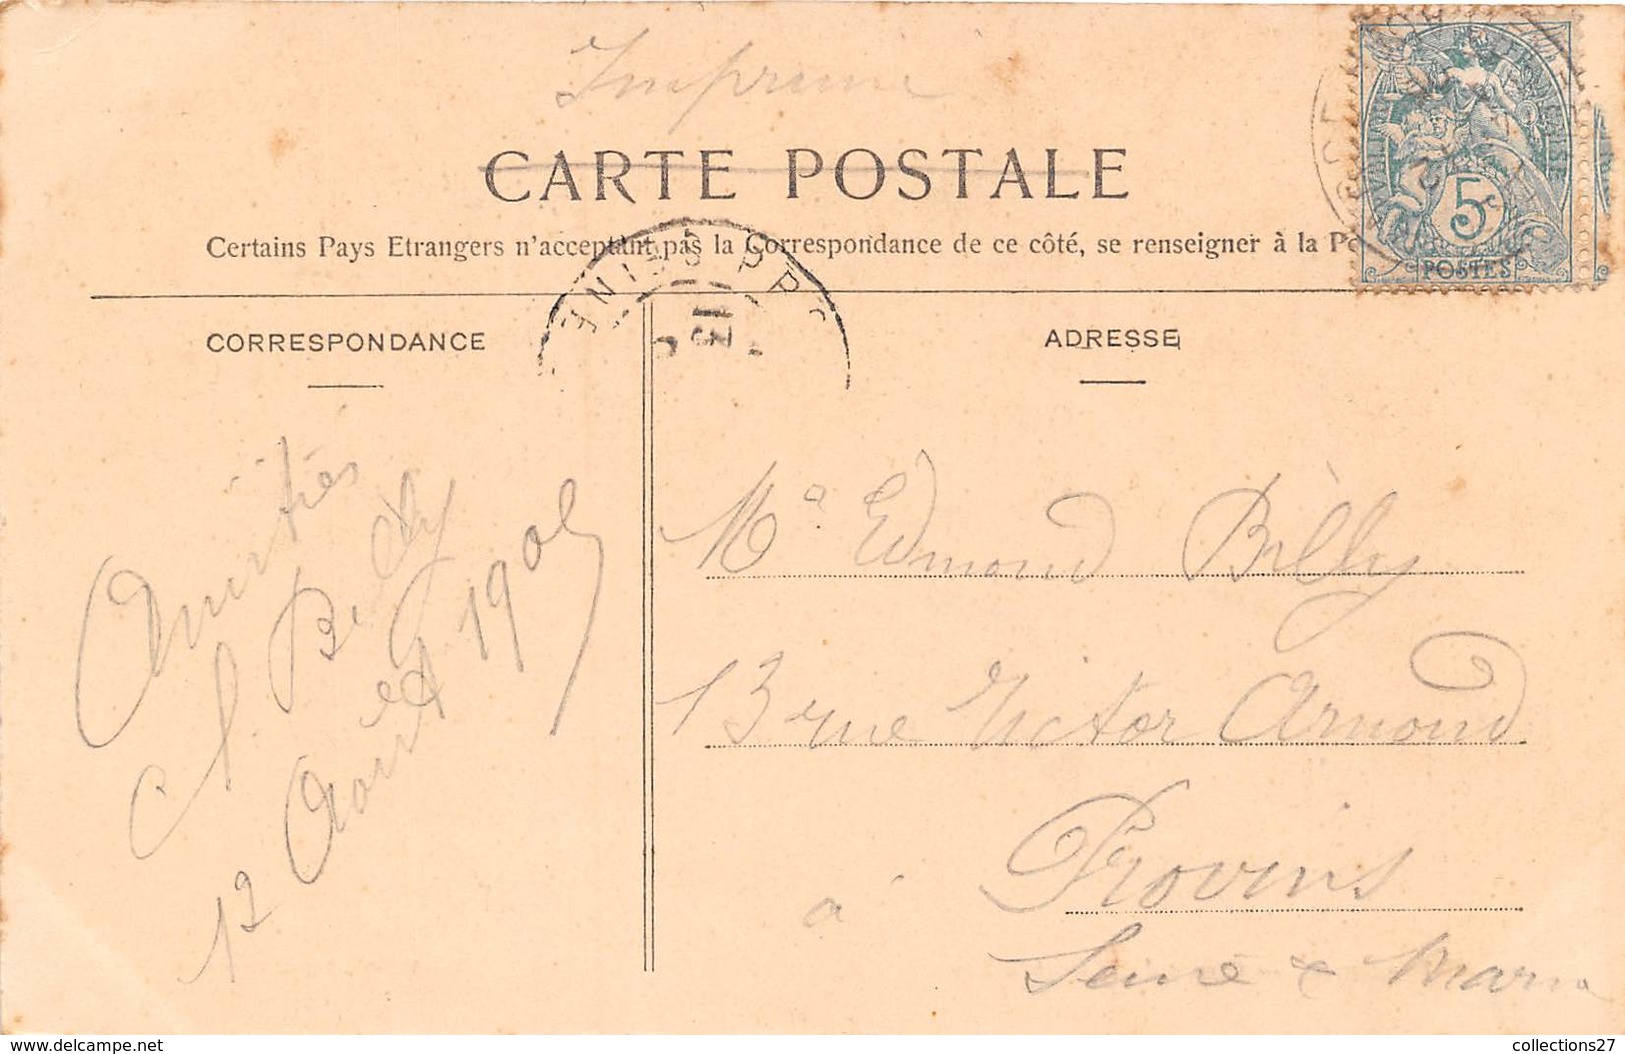 Imprimé
CARTE POSTALE
Certains Pays Etrangers n'acceptant pas la Correspondance de ce côté, se renseigner à la Po
5c
POSTES
CORRESPONDANCE
ADRESSE
13
Amitiés
12 Août 190
Mr Edmond Billy
13 rue Victor Arnoud
à Provins
Seine & Marne
www.delcampe.net
collections27